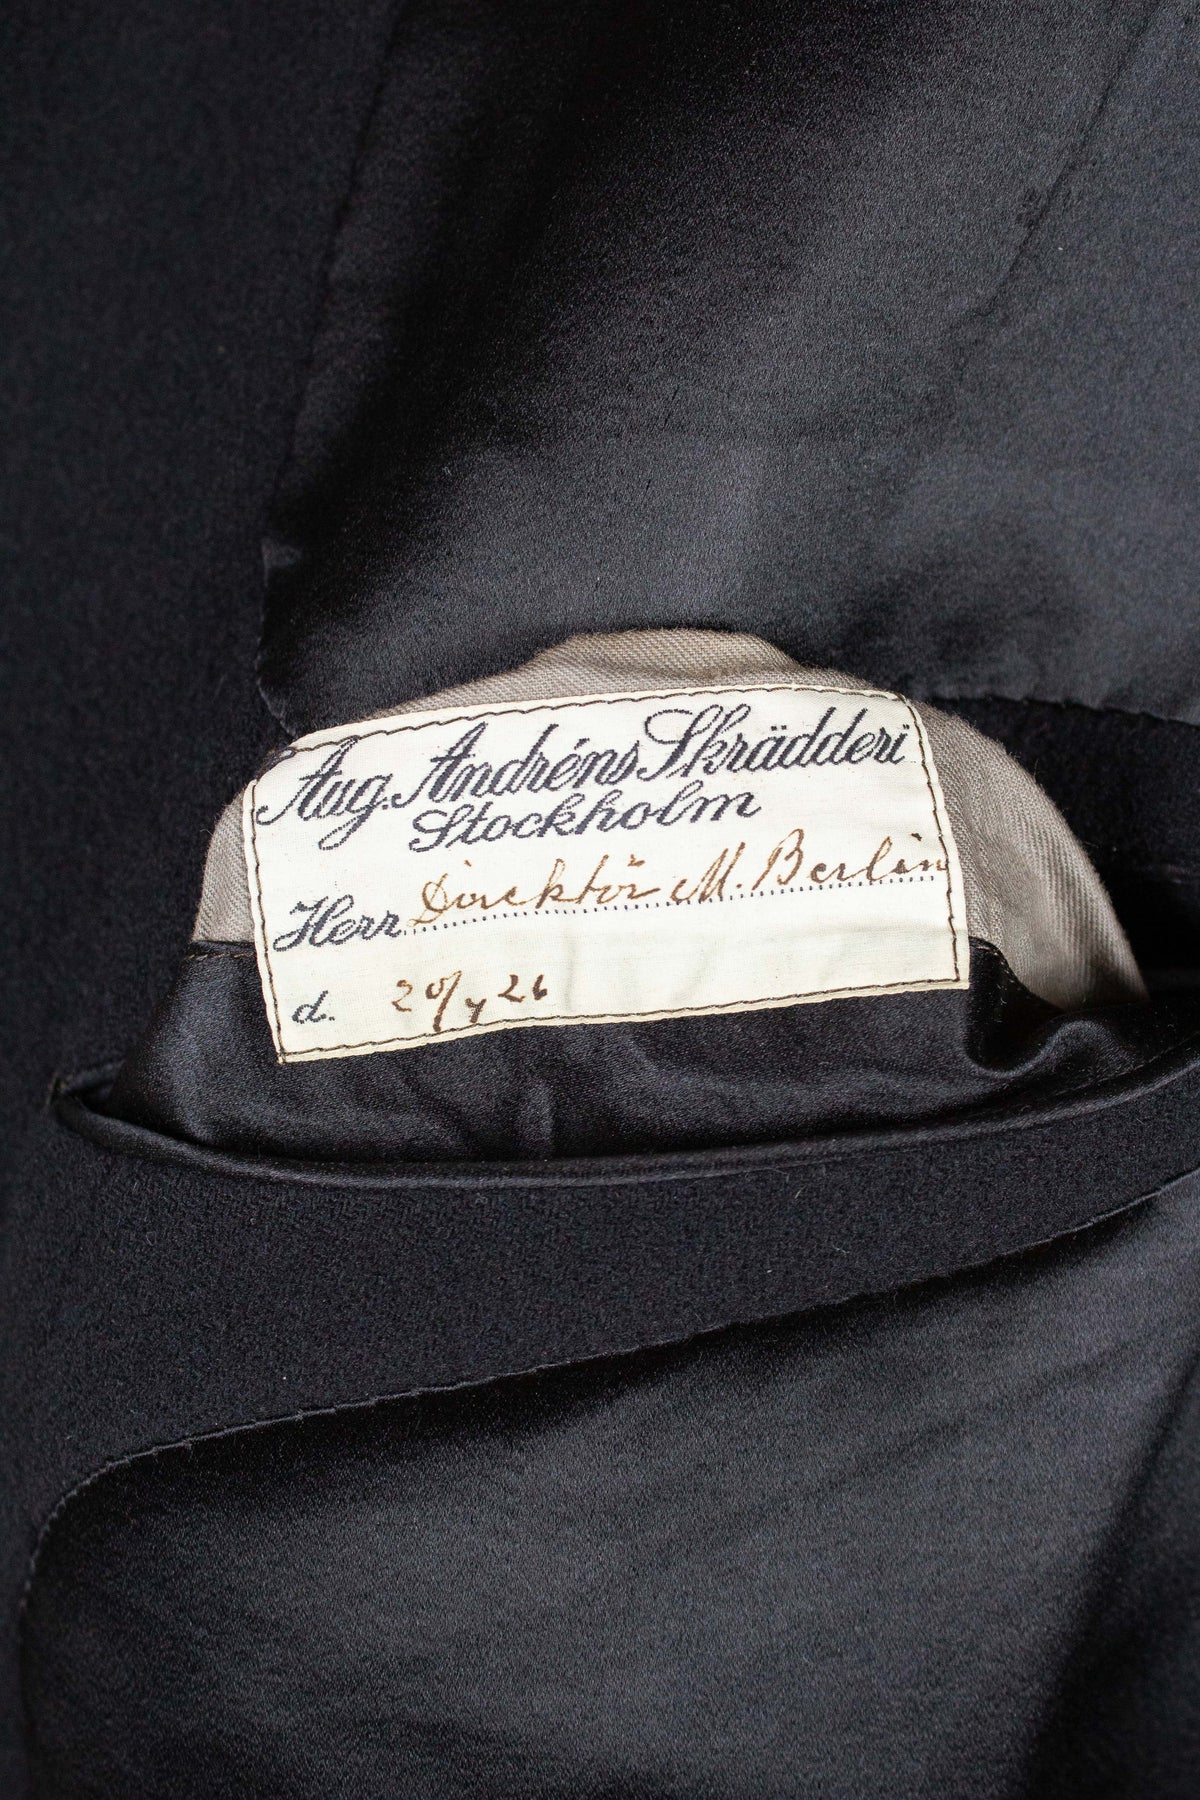 Aug. Andréns Skrädderi
Stockholm
Herr Direktör M. Berlin
d. 20/4 26